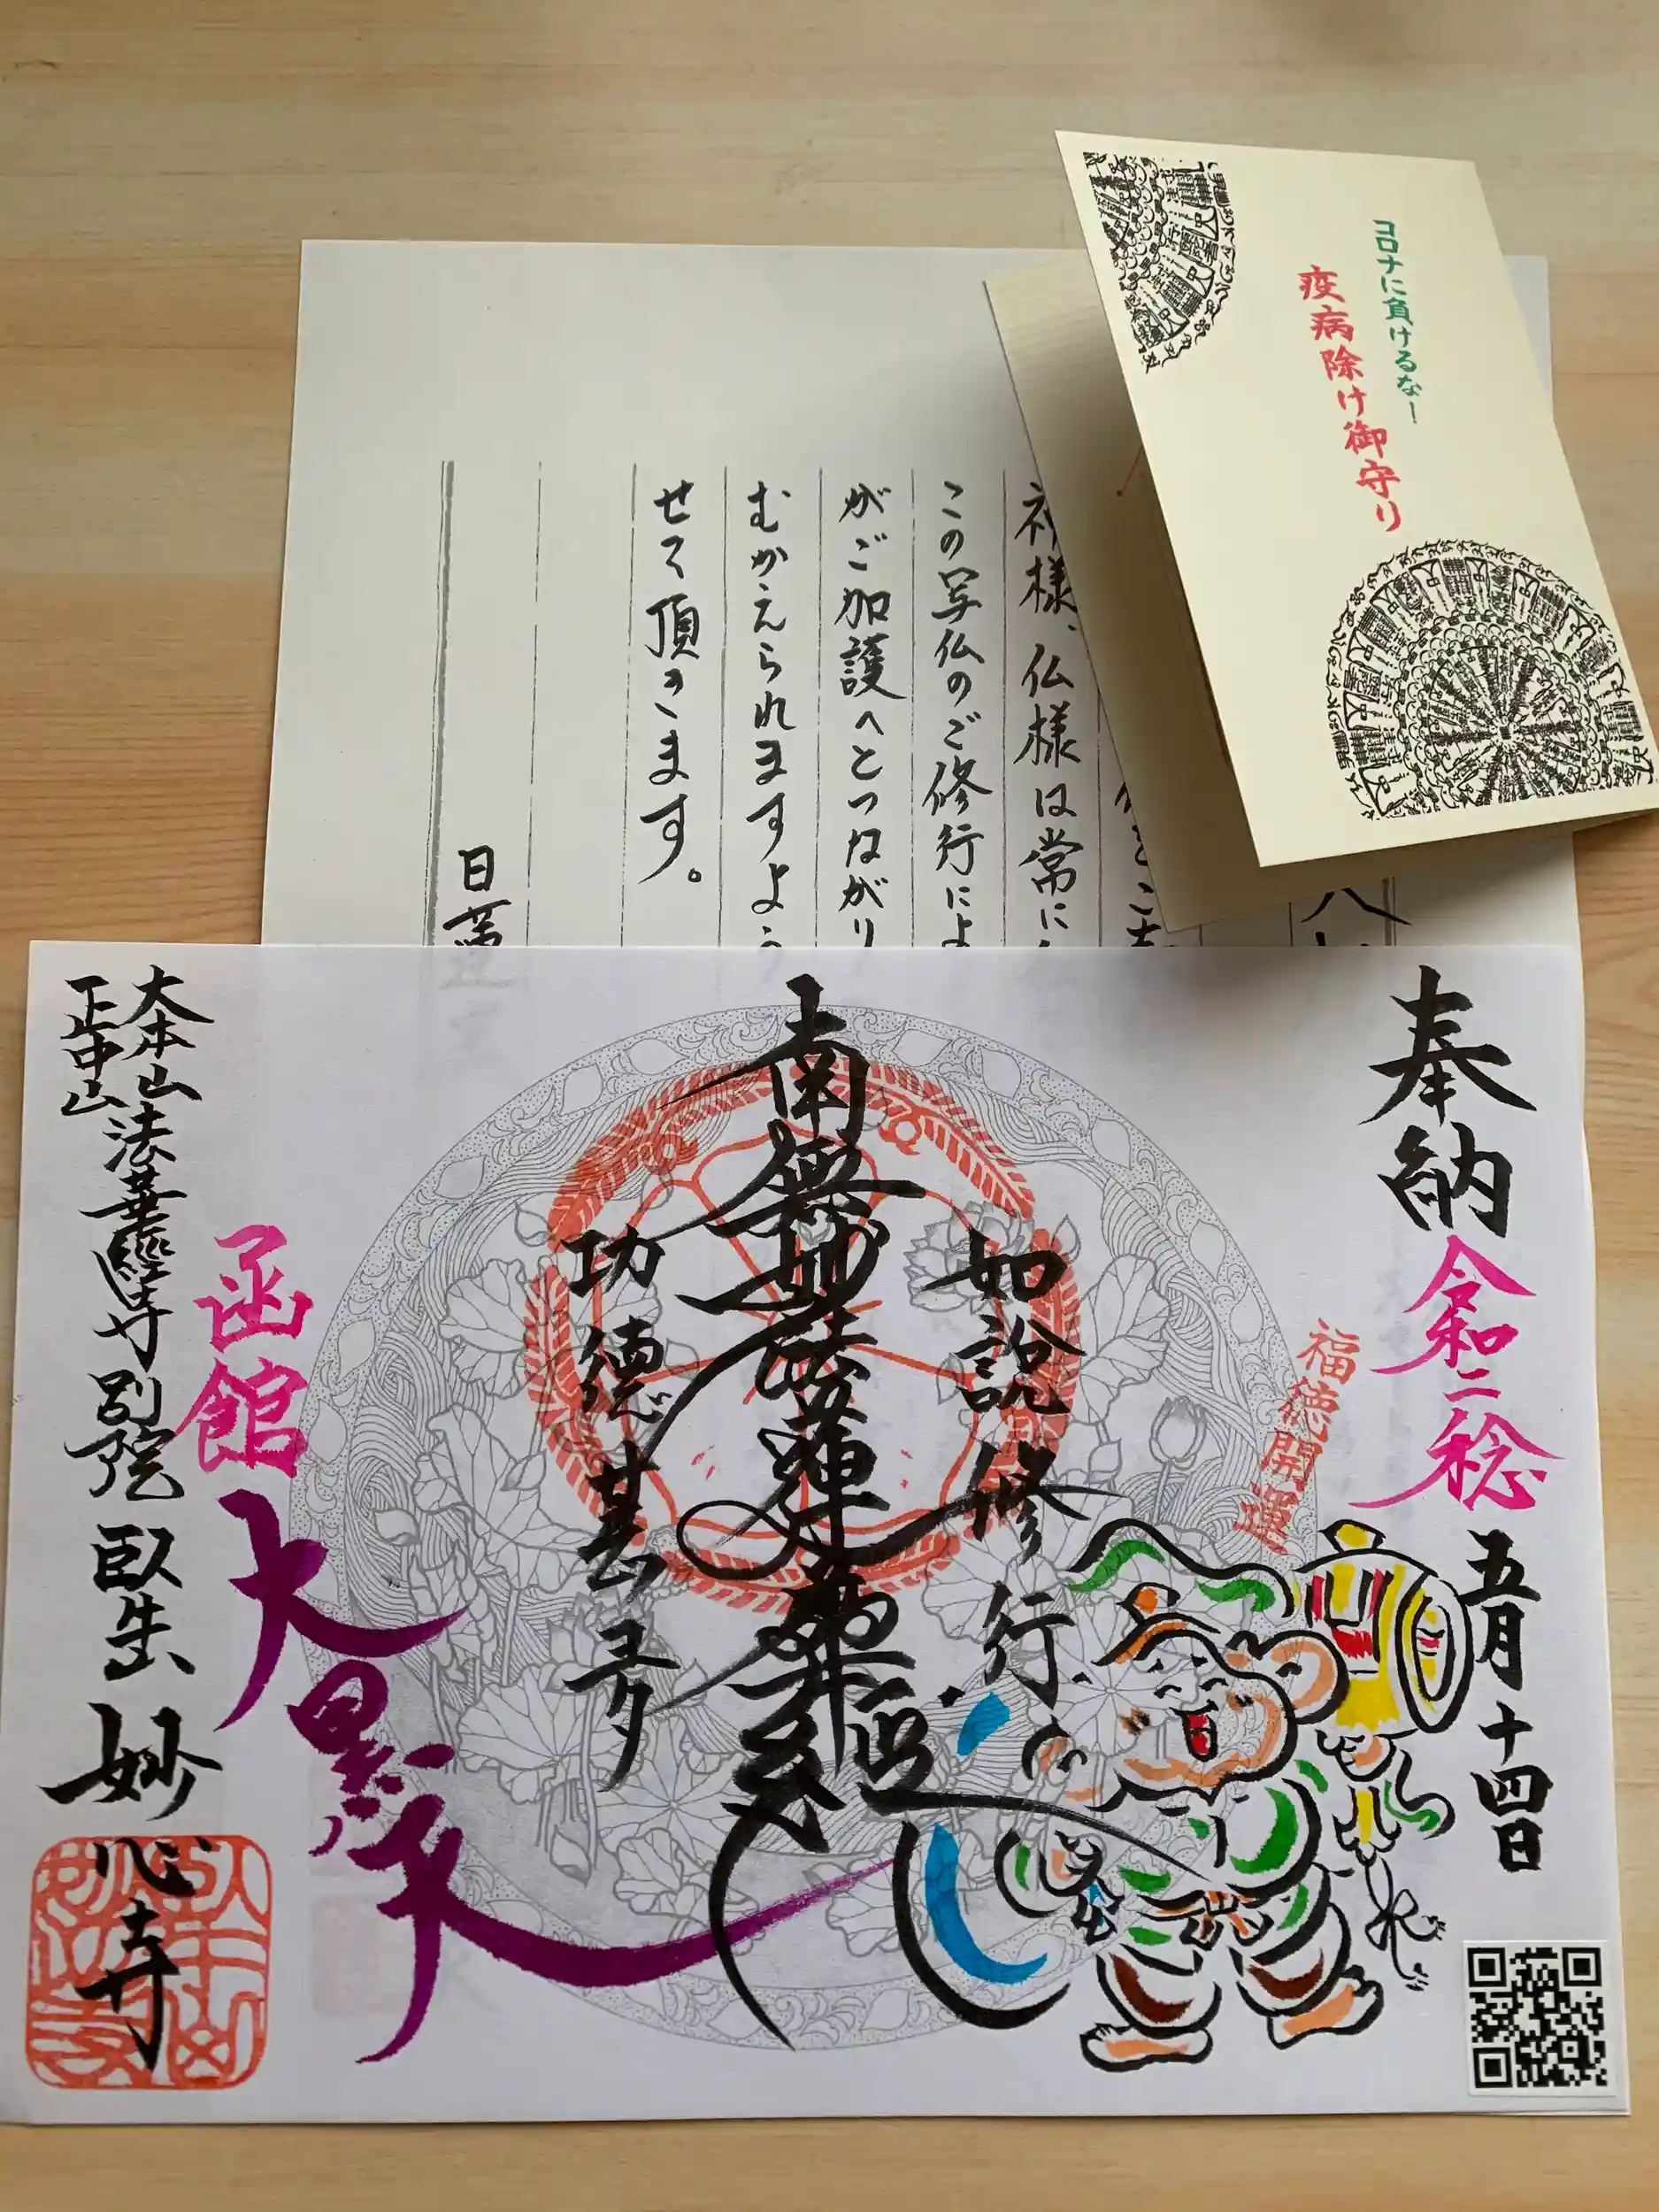 コロナに負けるな!
疫病除け御守り
神様、仏様は常に
この写仏のご修行によ
がご加護へとつながり
むかえられますよう
せて頂きます。
日蓮
奉納 令和二稔 五月十四日
福徳開運
如說修行
南無妙法蓮華経
功徳甚多
函館
大黒天
大本山法華経寺別院
正中山
臥牛山 妙心寺